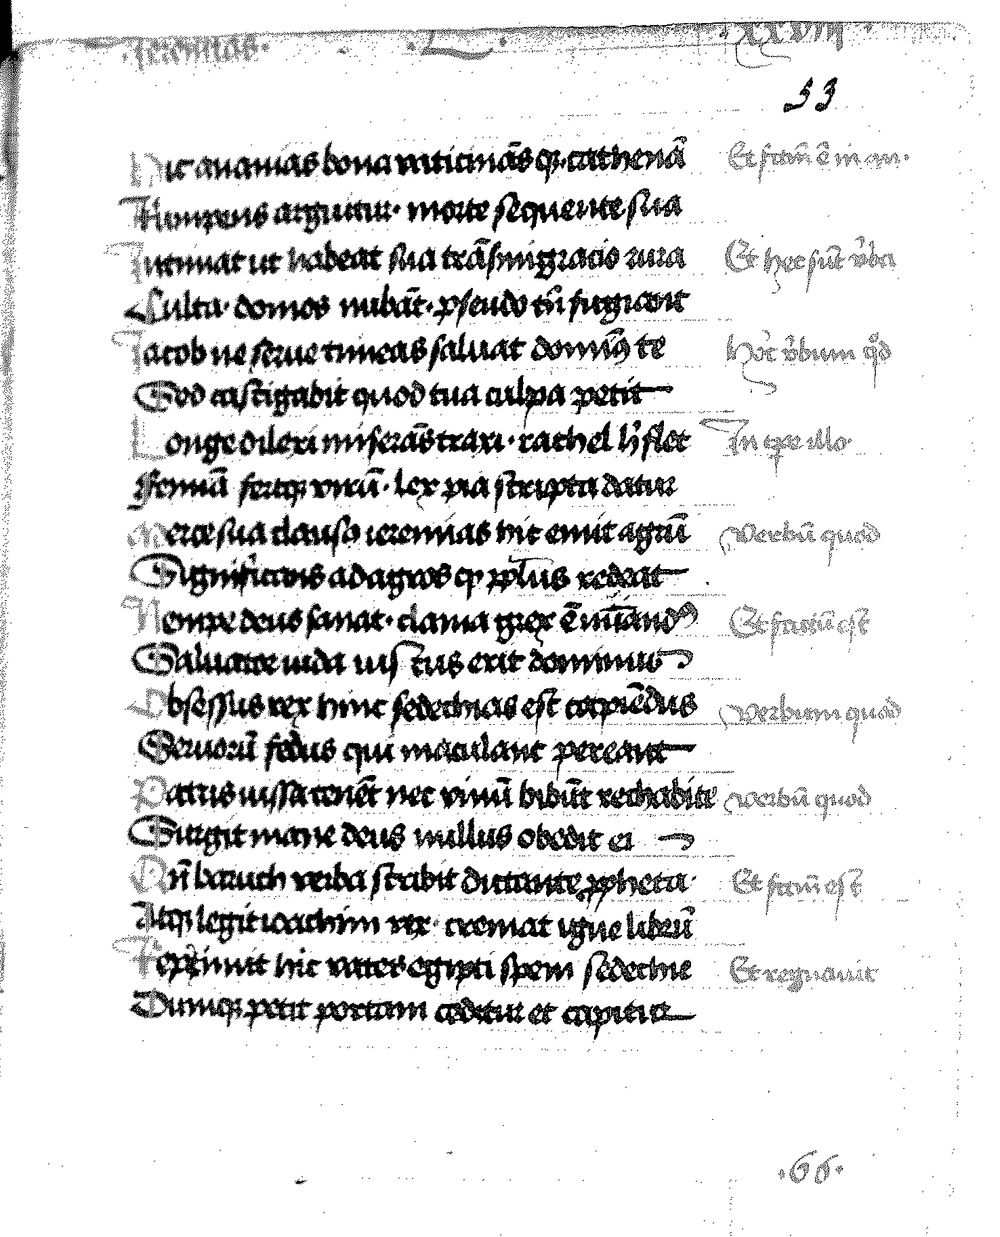 Jeremias. · L · · xxviii
53
Hic ananias bona vaticinās q3 cathenā Et factū ē in an·
Rumpens arguitur· morte sequente sua
Intimat ut habeat sua trāsmigracio rura Et hec sūt v̄ba
Culta· domos nubāt· pseudo tn̄ fugiant
Jacob ne serue timeas saluat dominus te hoc v̄bum qd
Sed castigabit quod tua culpa petit
Longe dilexi miserās traxi· rachel hic flet In tp̄re illo·
Femīa fertq3 virū· lex pia scripta datur
Carcere sua clauso ieremias hic emit agrū verbū quod
Significans ad agros q̄ pp̄lus redeat
Nempe deus sanat· clama grex ē Et factū est
Saluator iuda iustus erit dominus
Obsessus rex hinc sedechias est capiēdus verbum quod
Seruorū fedus qui maculant pereant
Patris iussa tenēt nec vinū bibūt rechabite verbū quod
Surgit mane deus nullus obedit ei
Qn̄ baruch verba scribit dictante ꝓpheta· Et factū est
Atq3 legit ioachim rex· cremat igne librū
Reprimit hic vates egipti spem sedechie Et regnauit
Dumq3 petit portam ceditur et capitur
·66·